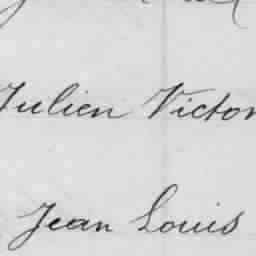 Julien Victor
Jean Louis